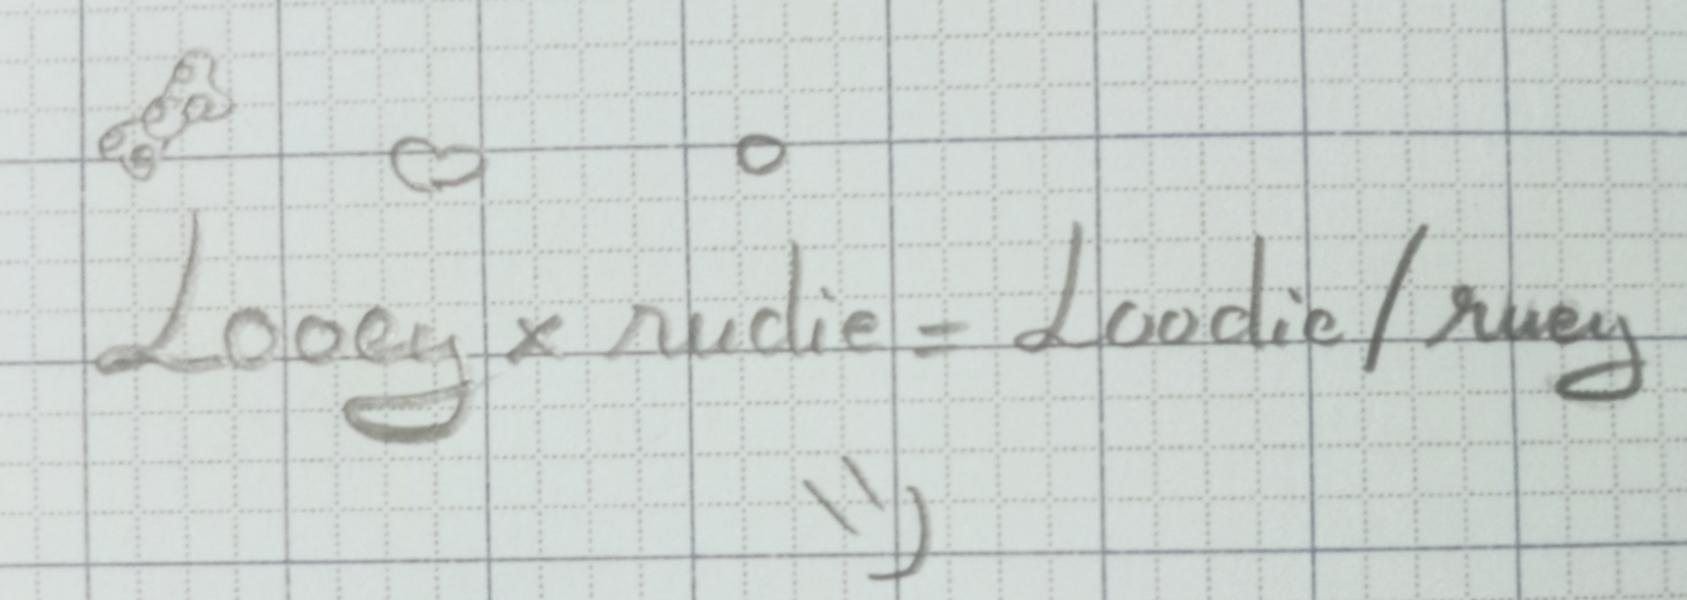 Looey x rudie = Loodie / ruey